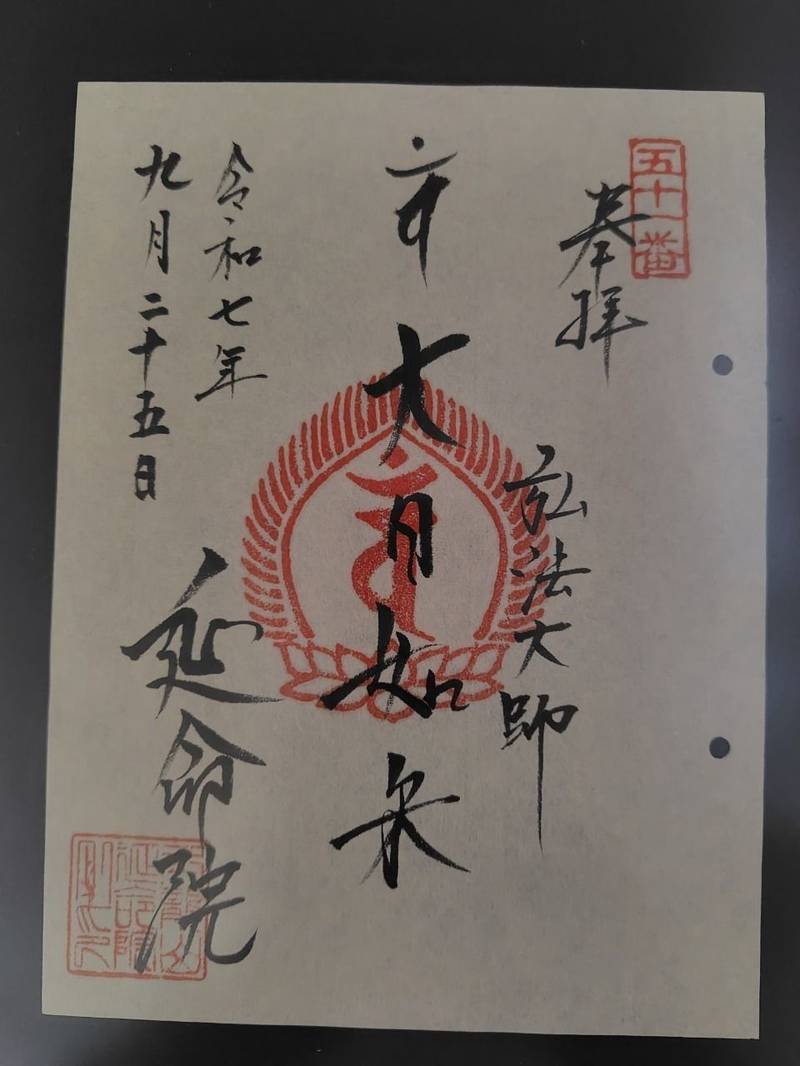 五十一番
奉拝
弘法大師
大日如来
令和七年
九月二十五日
延命院